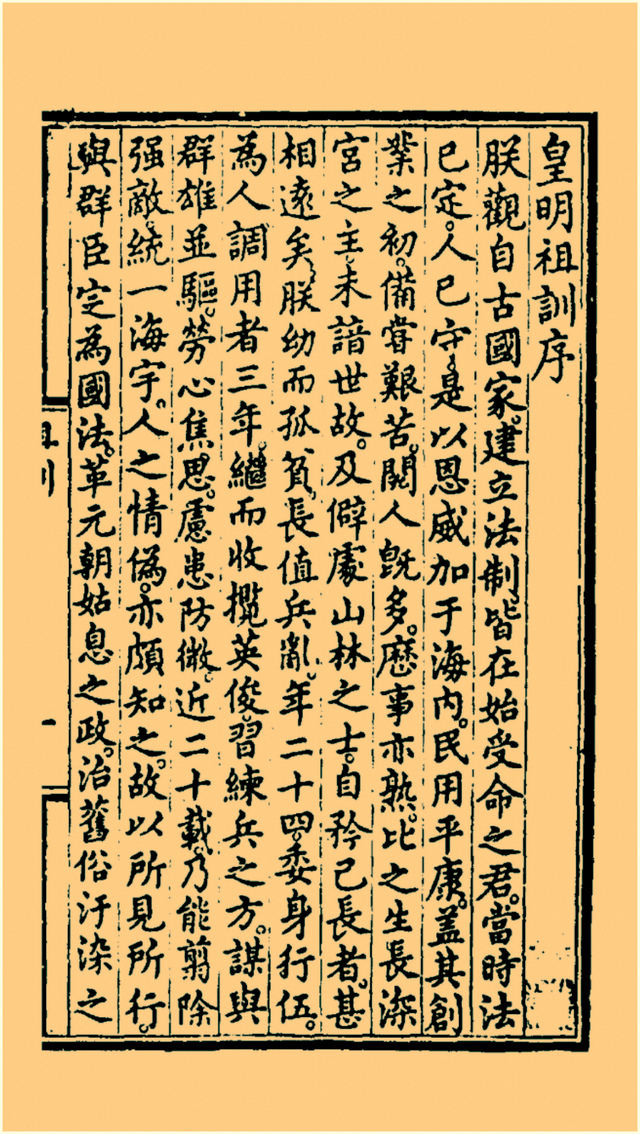 皇明祖訓序
朕觀自古國家。建立法制。皆在始受命之君。當時法
已定。人已守。是以恩威加于海內。民用平康。蓋其創
業之初。備嘗艱苦。閱人旣多。歷事亦熟。比之生長深
宮之主。未諳世故。及僻處山林之士。自矜己長者。甚
相遠矣。朕幼而孤貧。長值兵亂。年二十四。委身行伍。
為人調用者三年。繼而收攬英俊。習練兵之方。謀與
群雄並驅。勞心焦思。慮患防微。近二十載。乃能翦除
强敵。統一海宇。人之情偽。亦頗知之。故以所見所行。
與群臣定為國法。革元朝姑息之政。治舊俗汙染之